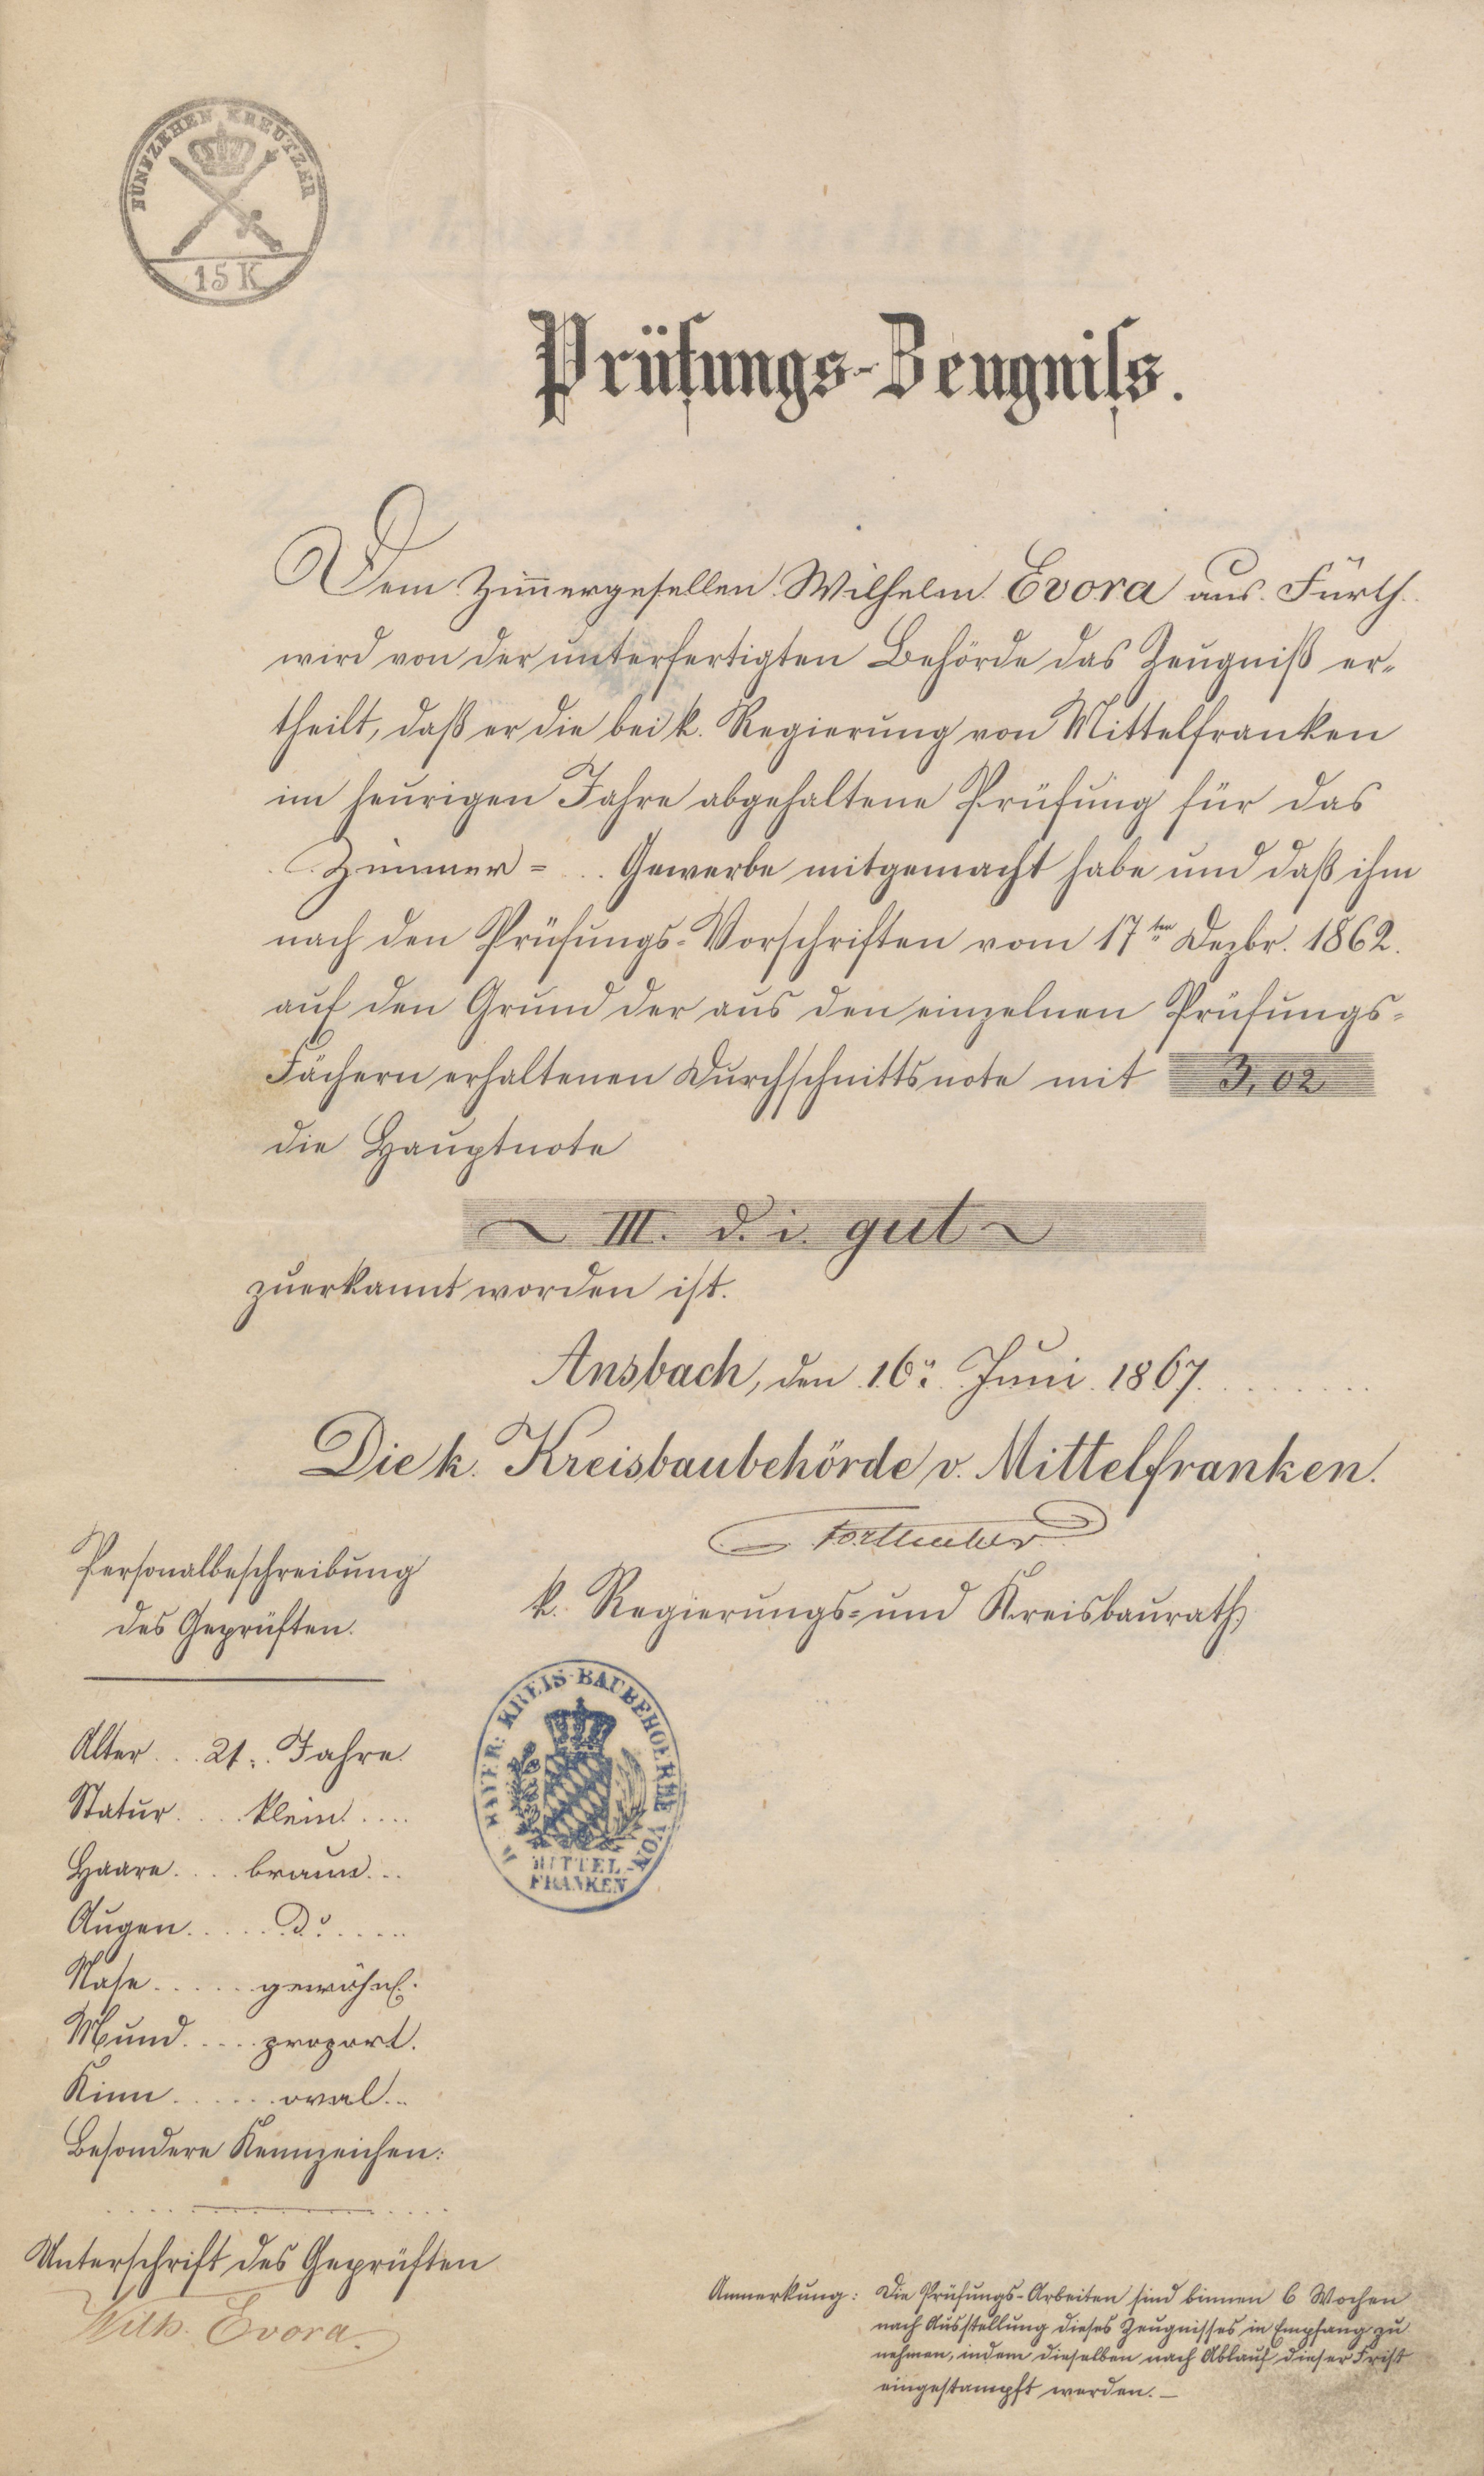 FÜNFZEHEN KREUTZER
15 K
Prüfungs-Zeugniſs.
Dem Zimmergesellen Wilhelm Evora aus Fürth
wird von der unterfertigten Behörde das Zeugniß er-
theilt, daß er die bei k. Regierung von Mittelfranken
im heurigen Jahre abgehaltene Prüfung für das
Zimmer- Gewerbe mitgemacht habe und daß ihm
nach den Prüfungs-Vorschriften vom 17ten Dezbr. 1862.
auf den Grund der aus den einzelnen Prüfungs-
Fächern erhaltenen Durchschnittsnote mit 3,02
die Hauptnote
III. d. i. gut
zuerkannt worden ist.
Ansbach, den 16n Juni 1867.
Die k. Kreisbaubehörde v. Mittelfranken.
k. Regierungs- und Kreisbaurath
Personalbeschreibung
des Geprüften.
Alter 21 Jahre
Statur klein
Haare braun
Augen do
Nase gewöhnl.
Mund proport.
Kinn oval
Besondere Kennzeichen:
Unterschrift des Geprüften
Wilh. Evora.
K. BAYER: KREIS-BAUBEHOERDE VON
MITTEL-
FRANKEN
Anmerkung: Die Prüfungs-Arbeiten sind binnen 6 Wochen
nach Ausstellung dieses Zeugnisses in Empfang zu
nehmen, indem dieselben nach Ablauf dieser Frist
eingestampft werden.—